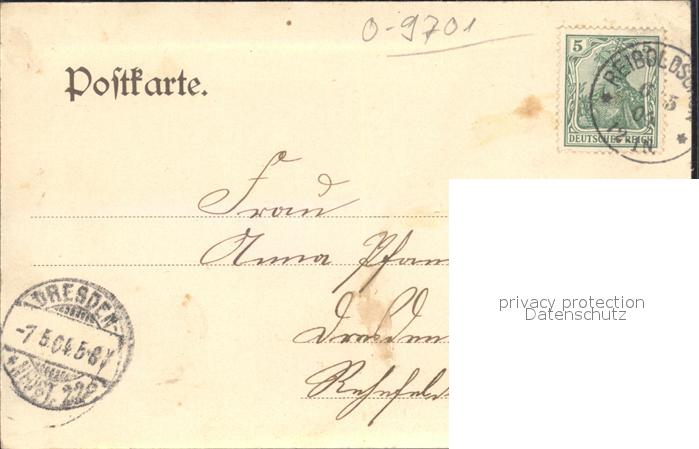 O-9701
Postkarte.
5
DEUTSCHES REICH
REIBOLDSGRÜN
5
Frau
Anna
Dresden
DRESDEN-
-7.5.04.5-6V
privacy protection
Datenschutz